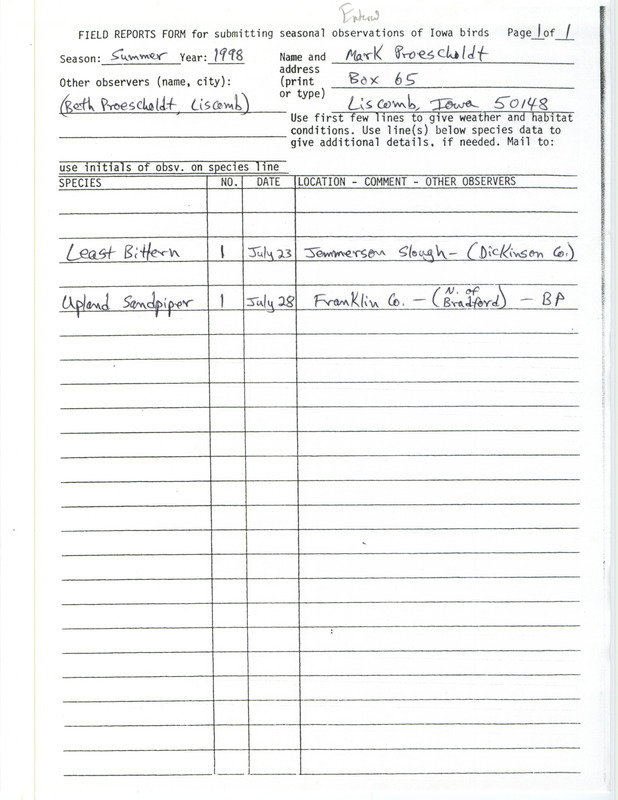 Entered
FIELD REPORTS FORM for submitting seasonal observations of Iowa birds Page 1 of 1
Season: Summer Year: 1998
Name and address (print or type)
Mark Proescholdt
Box 65
Liscomb, Iowa 50148
Other observers (name, city):
(Beth Proescholdt, Liscomb)
Use first few lines to give weather and habitat
conditions. Use line(s) below species data to
give additional details, if needed. Mail to:
use initials of obsv. on species line
SPECIES NO. DATE LOCATION - COMMENT - OTHER OBSERVERS
Least Bittern 1 July 23 Jemmerson Slough - (Dickinson Co.)
Upland Sandpiper 1 July 28 Franklin Co. - (N. of Bradford) - BP